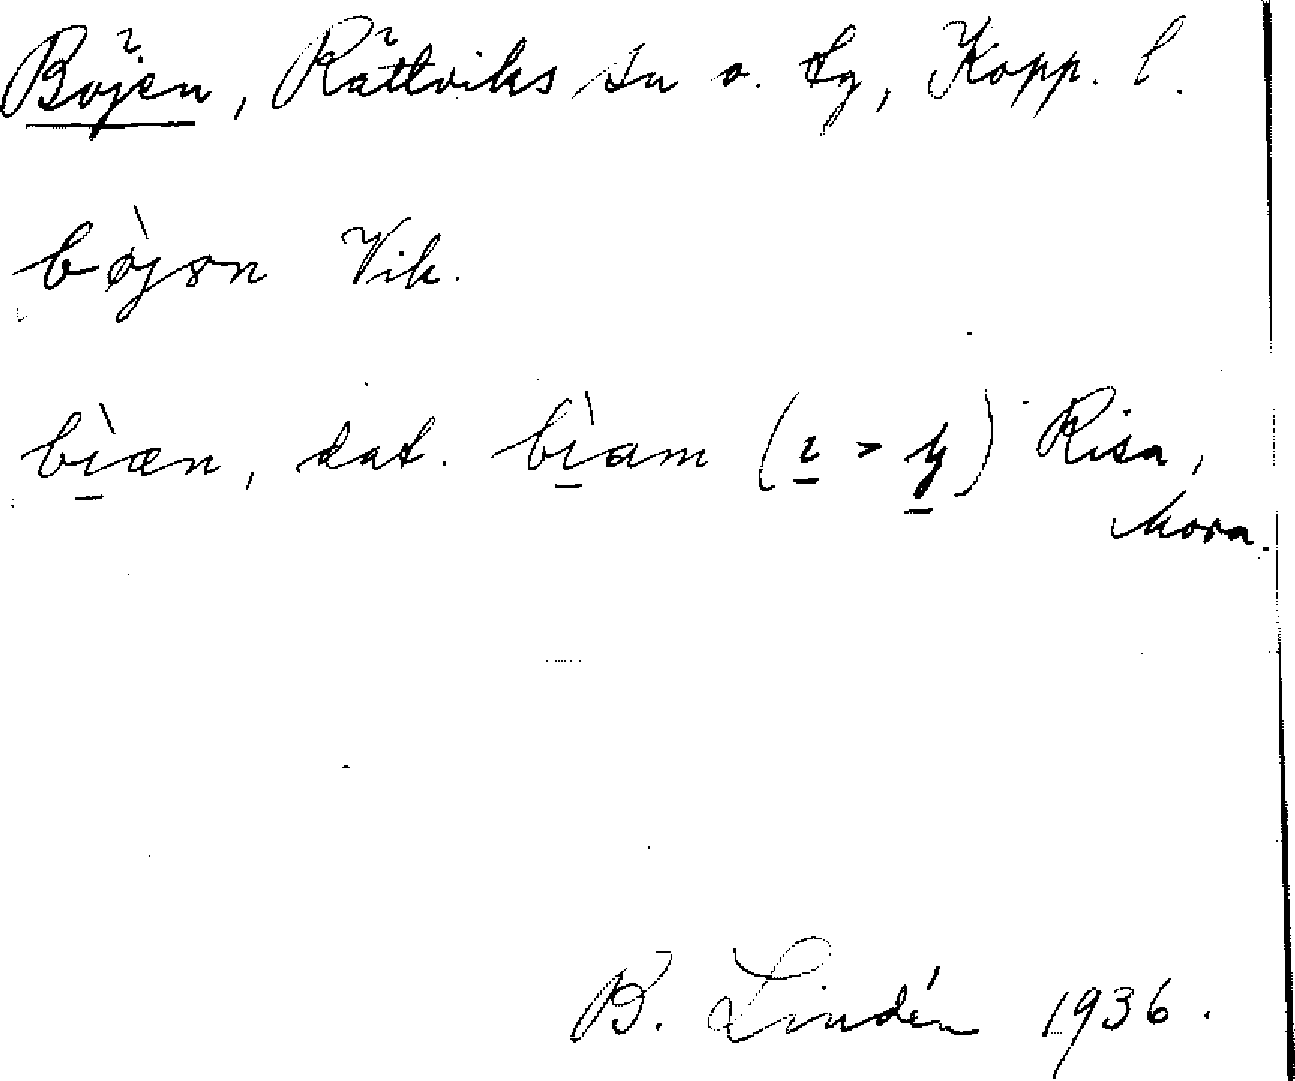 Böjen, Rättviks sn o. tg, Kopp. l.
bòjən Vik.
bı̠̀æn, dat. bı̠̀am (ı̠ > y̠) Risa,
Mora.
B. Lindén 1936.